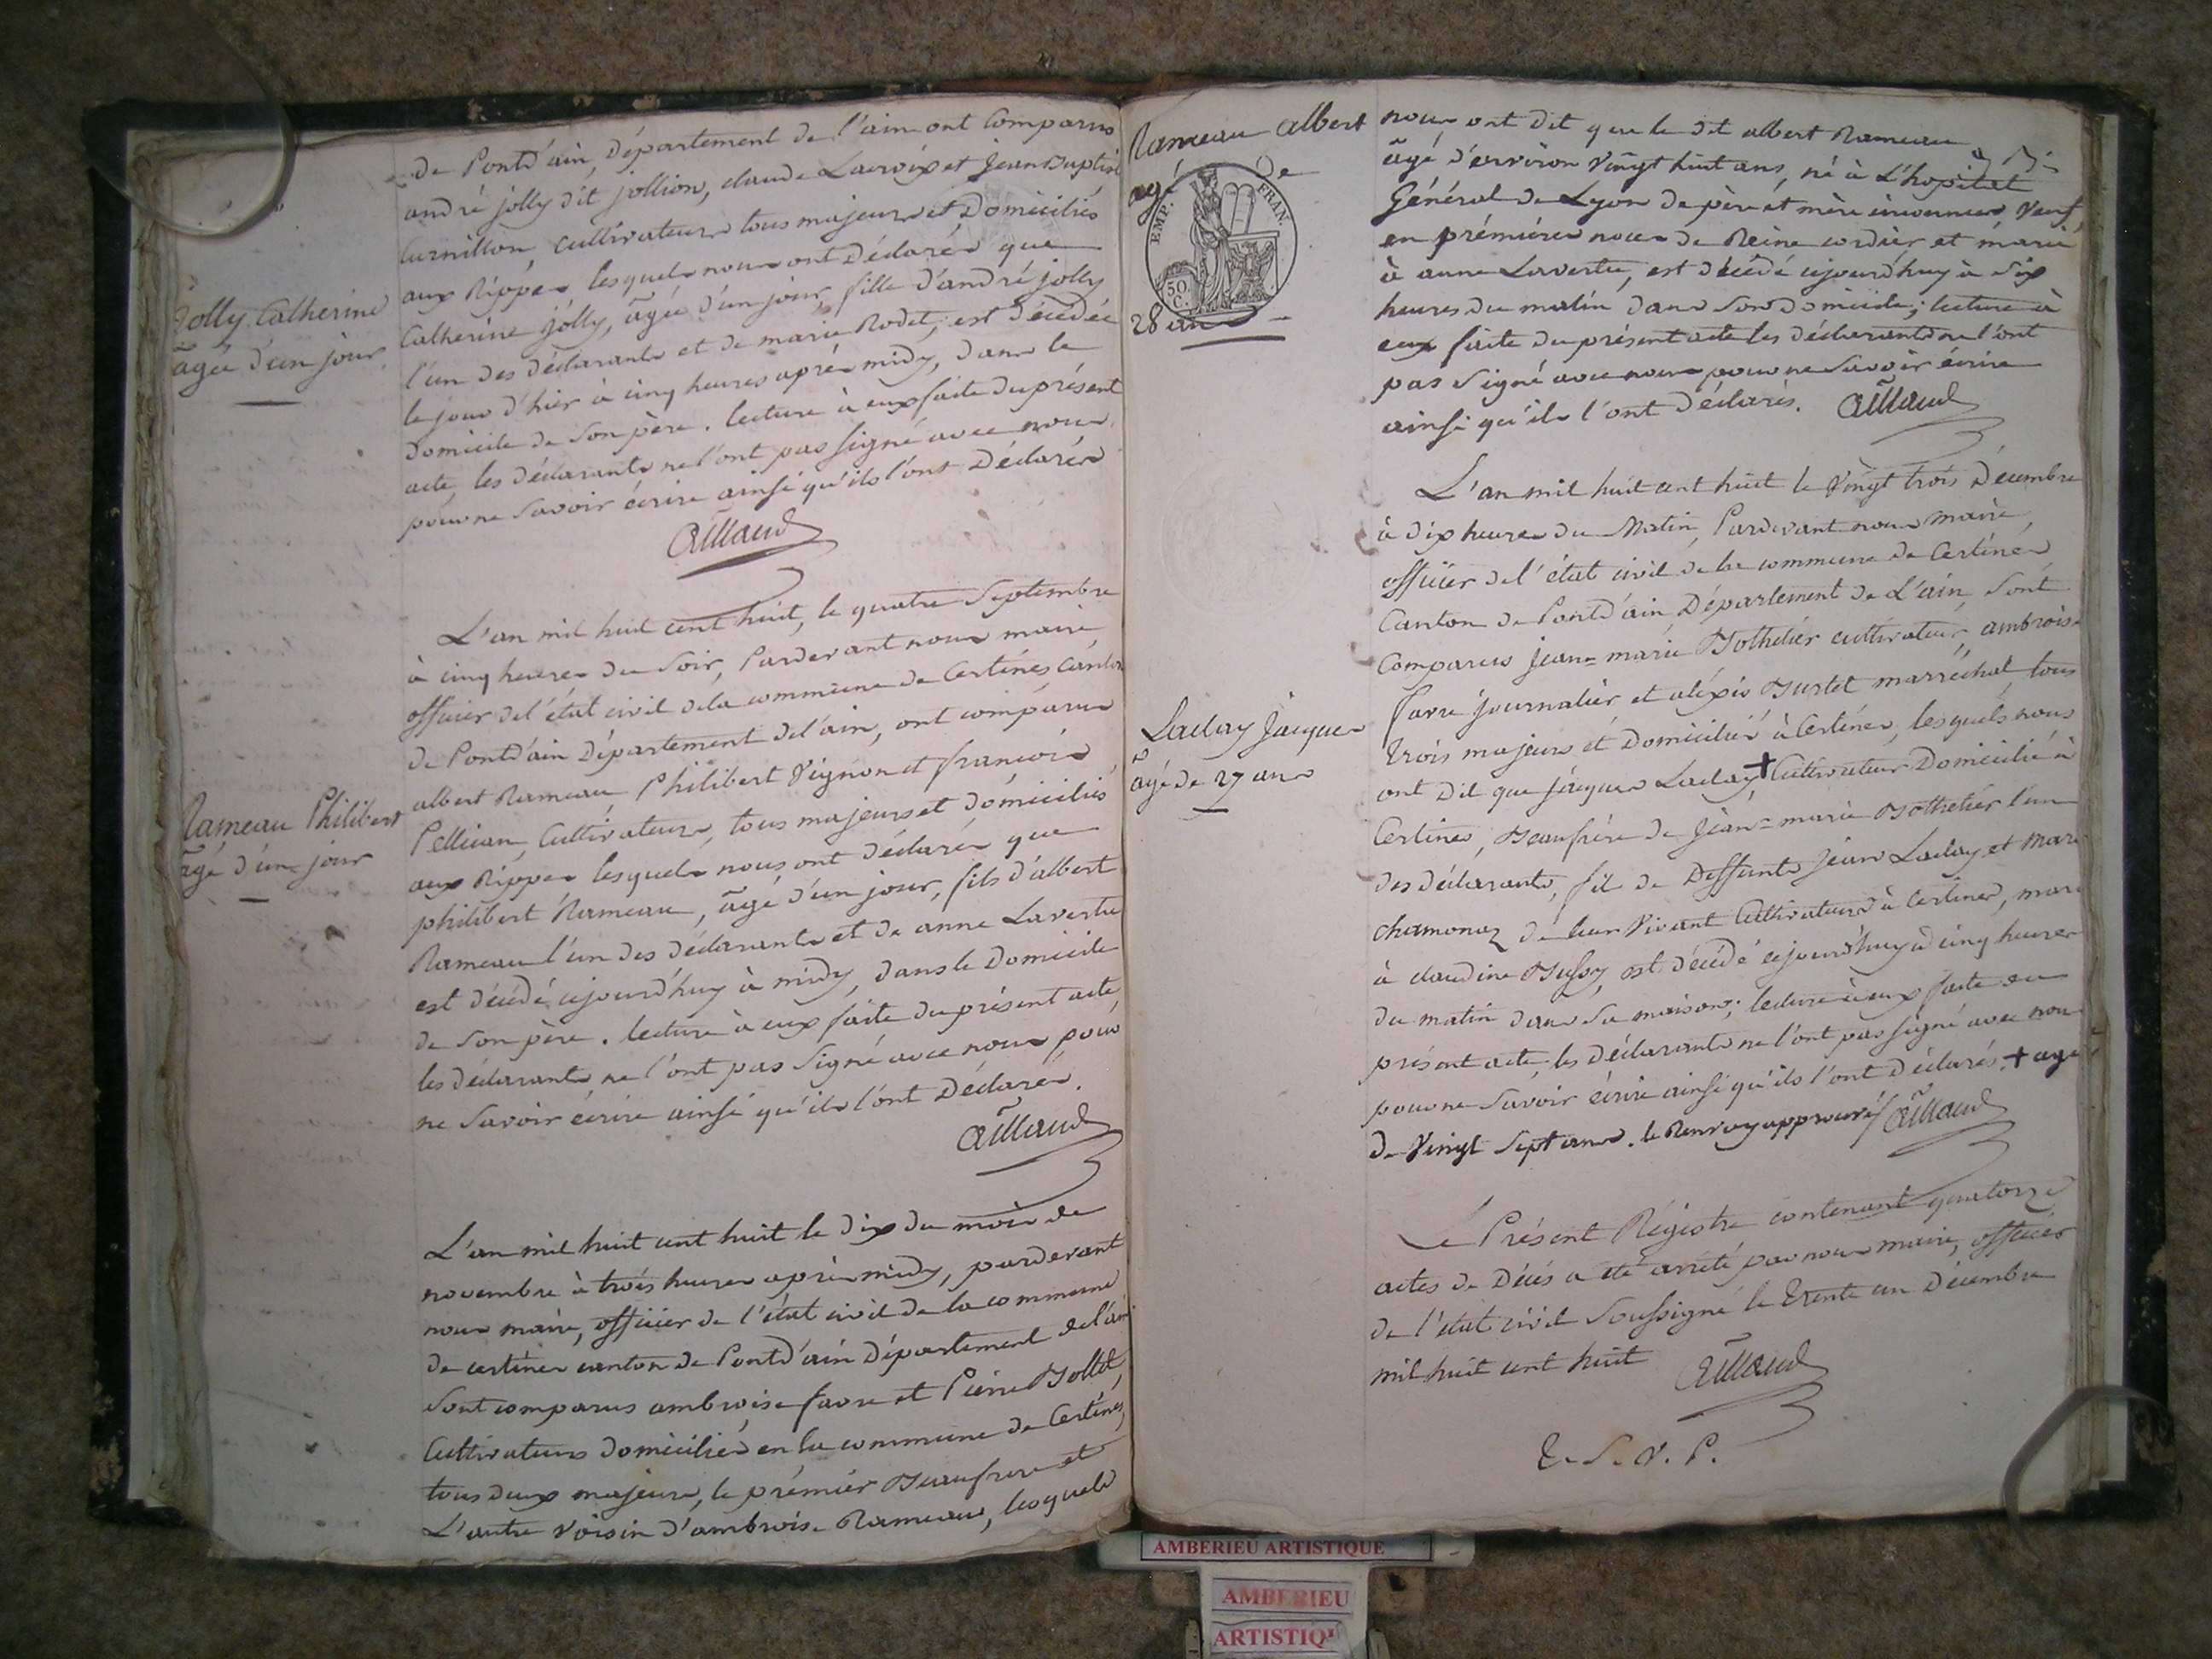 de Pontd'ain, Département de l'ain ont Comparus
andré jolly dit jollion, claude Lacroix et Jean Baptiste
Curnillon, cultivateurs tous majeurs et Domiciliés
aux Rippes lesquels nous ont Déclarés que
Jolly Catherine
âgée d'un jour
Catherine jolly, âgée d'un jour, fille d'andré jolly
l'un des déclarants et de marie Rodet, est décédée
le jour d'hier à cinq heures après midy, dans le
domicile de son père. lecture à eux faite du présent
acte, les déclarants ne l'ont pas signé avec nous
pour ne savoir écrire ainsi qu'ils l'ont Déclarés
Aillaud
L'an mil huit cent huit, le quatre Septembre
à cinq heures du soir, Pardevant nous maire
officier de l'état civil de la commune de Certines, Canton
de Pontd'ain Département de l'ain, ont comparus
albert Rameau, Philibert Vignon et françois
Rameau Philibert
âgé d'un jour
Pellican, Cultivateurs, tous majeurs et domiciliés
aux Rippes lesquels nous ont déclarés que
philibert Rameau, âgé d'un jour, fils d'albert
Rameau l'un des déclarants et de anne Lavertu
est décédé cejourd'huy à midy, dans le Domicile
de son père. lecture à eux faite du présent acte
les déclarants ne l'ont pas signé avec nous pour
ne savoir écrire ainsi qu'ils l'ont Déclarés.
Aillaud
L'an mil huit cent huit le dix du mois de
novembre à trois heures après midy, pardevant
nous maire, officier de l'état civil de la commune
de certines canton de Pontd'ain Département de l'ain
sont comparus ambroise favre et Pierre Bollet,
Cultivateurs domiciliés en la commune de Certines,
tous deux majeurs, le prémier Beaufrere et
L'autre voisin d'ambroise Rameau, lesquels
Rameau Albert
agé de
EMP. FRAN.
50 C.
28 ans
nous ont dit que le dit albert Rameau
âgé d'environ vingt huit ans, né à L'hopital
Général de Lyon de père et mère inconnus Veuf
en prémières noces de Reine cordier et marié
à anne Lavertu, est décédé cejourd'huy à six
heures du matin dans son domicile; lecture à
eux faite du présent acte les déclarants ne l'ont
pas signé avec nous pour ne savoir écrire
ainsi qu'ils l'ont déclarés. Aillaud
L'an mil huit cent huit le Vingt trois Décembre
à dix heures du Matin, Pardevant nous maire,
officier de l'état civil de la commune de Certines
Canton de Pontd'ain, Département de L'ain, Sont
Comparus Jean=marie Bothelier cultivateur, ambroise
Favre journalier et aléxis Burtet marréchal, tous
Laclay Jacques
âgé de 27 ans
trois majeurs et domiciliés à Certines, lesquels nous
ont dit que jacques Laclay + Cultivateur Domicilié à
Certines, Beaufrère de Jean=marie Bothelier l'un
des déclarants, fils de Deffunts Jean Laclay et Marie
chamonaz de leur Vivant Cultivateurs à Certines, mari
à claudine Bussy, est décédé cejourd'huy à cinq heures
du matin dans sa maison; lecture à eux faite du
présent acte, les déclarants ne l'ont pas signé avec nous
pour ne savoir écrire ainsi qu'ils l'ont déclarés, + agé
de Vingt Sept ans. le Renvoy approuvé Aillaud
Le Présent Régistre contenant quatorze
actes de Décés a été arrêté par nous maire, officier
de l'état civil Soussigné le Trente un Décembre
mil huit cent huit Aillaud
T. S. V. P.
AMBERIEU ARTISTIQUE
AMBERIEU
ARTISTIQU